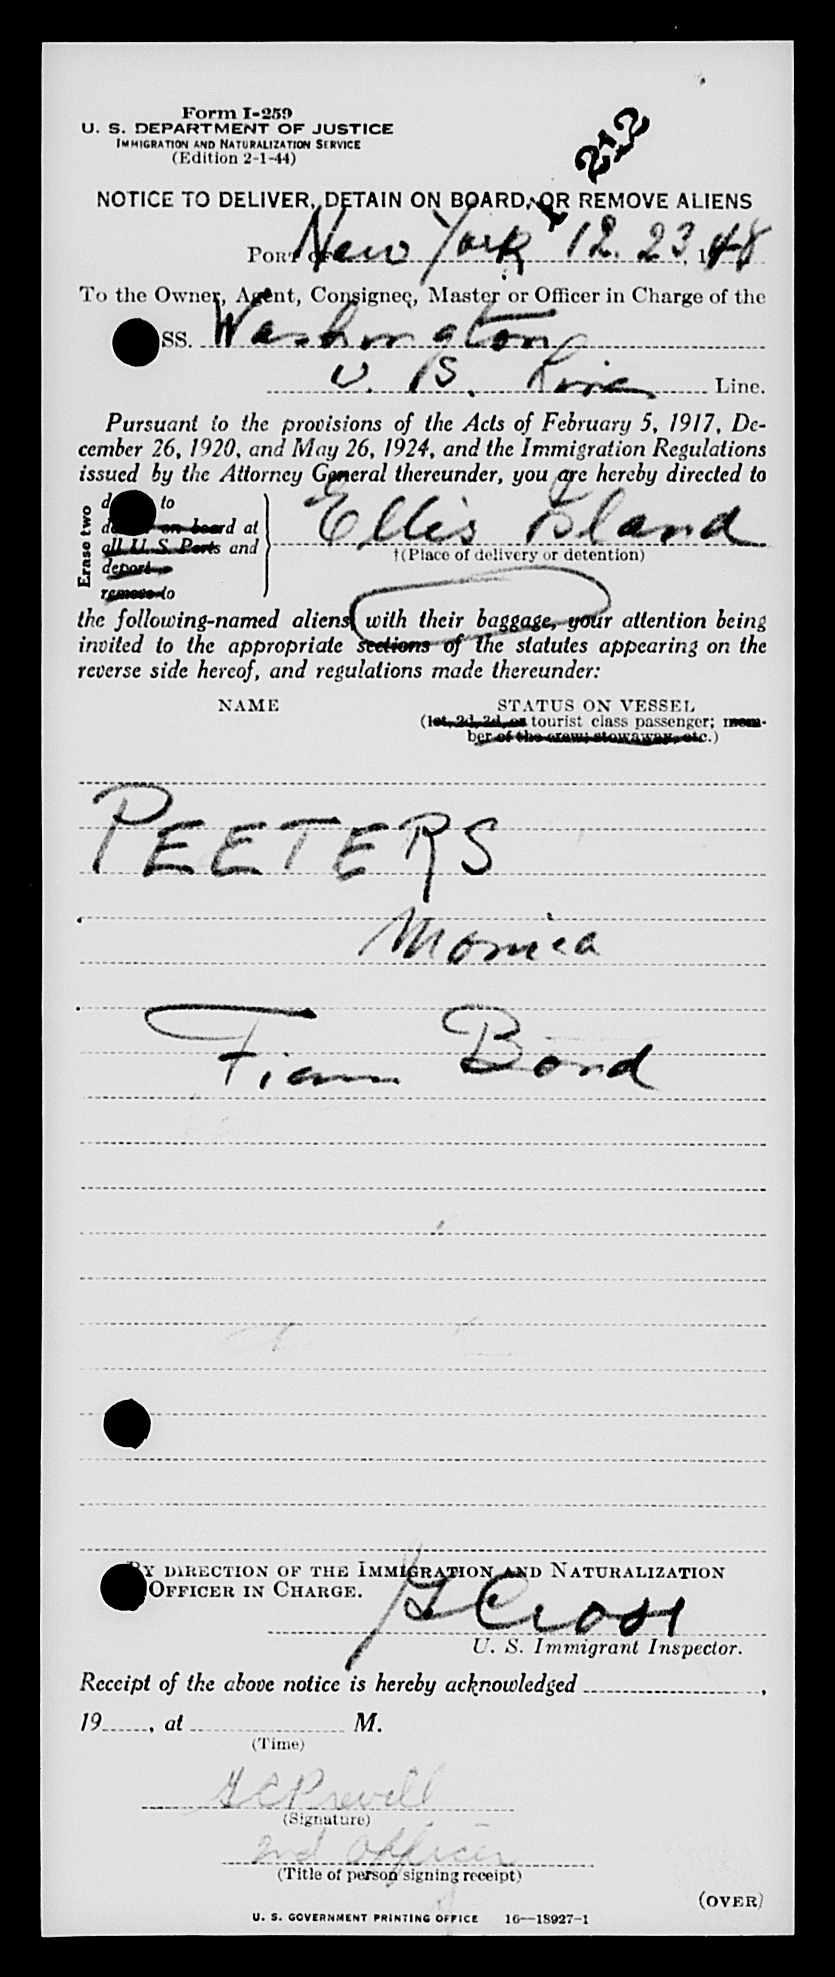 Form I-259
U. S. DEPARTMENT OF JUSTICE
IMMIGRATION AND NATURALIZATION SERVICE
(Edition 2-1-44)
212
NOTICE TO DELIVER, DETAIN ON BOARD, OR REMOVE ALIENS
PORT OF New York 12. 23, 1948
To the Owner, Agent, Consignee, Master or Officer in Charge of the
SS. Washington
U. S. Line.
Pursuant to the provisions of the Acts of February 5, 1917, De-
cember 26, 1920, and May 26, 1924, and the Immigration Regulations
issued by the Attorney General thereunder, you are hereby directed to
Erase two
to
on board at
all U. S. Ports and
deport
remove to
Ellis Island
†(Place of delivery or detention)
the following-named aliens with their baggage, your attention being
invited to the appropriate sections of the statutes appearing on the
reverse side hereof, and regulations made thereunder:
NAME STATUS ON VESSEL
(1st, 2d, 3d, or tourist class passenger; mem-
ber of the crew; stowaway, etc.)
PEETERS
Monica
Bond
BY DIRECTION OF THE IMMIGRATION AND NATURALIZATION
OFFICER IN CHARGE.
Cross
U. S. Immigrant Inspector.
Receipt of the above notice is hereby acknowledged ,
19 , at M.
(Time)
(Signature)
2nd Officer
(Title of person signing receipt)
(OVER)
U. S. GOVERNMENT PRINTING OFFICE 16—18927-1